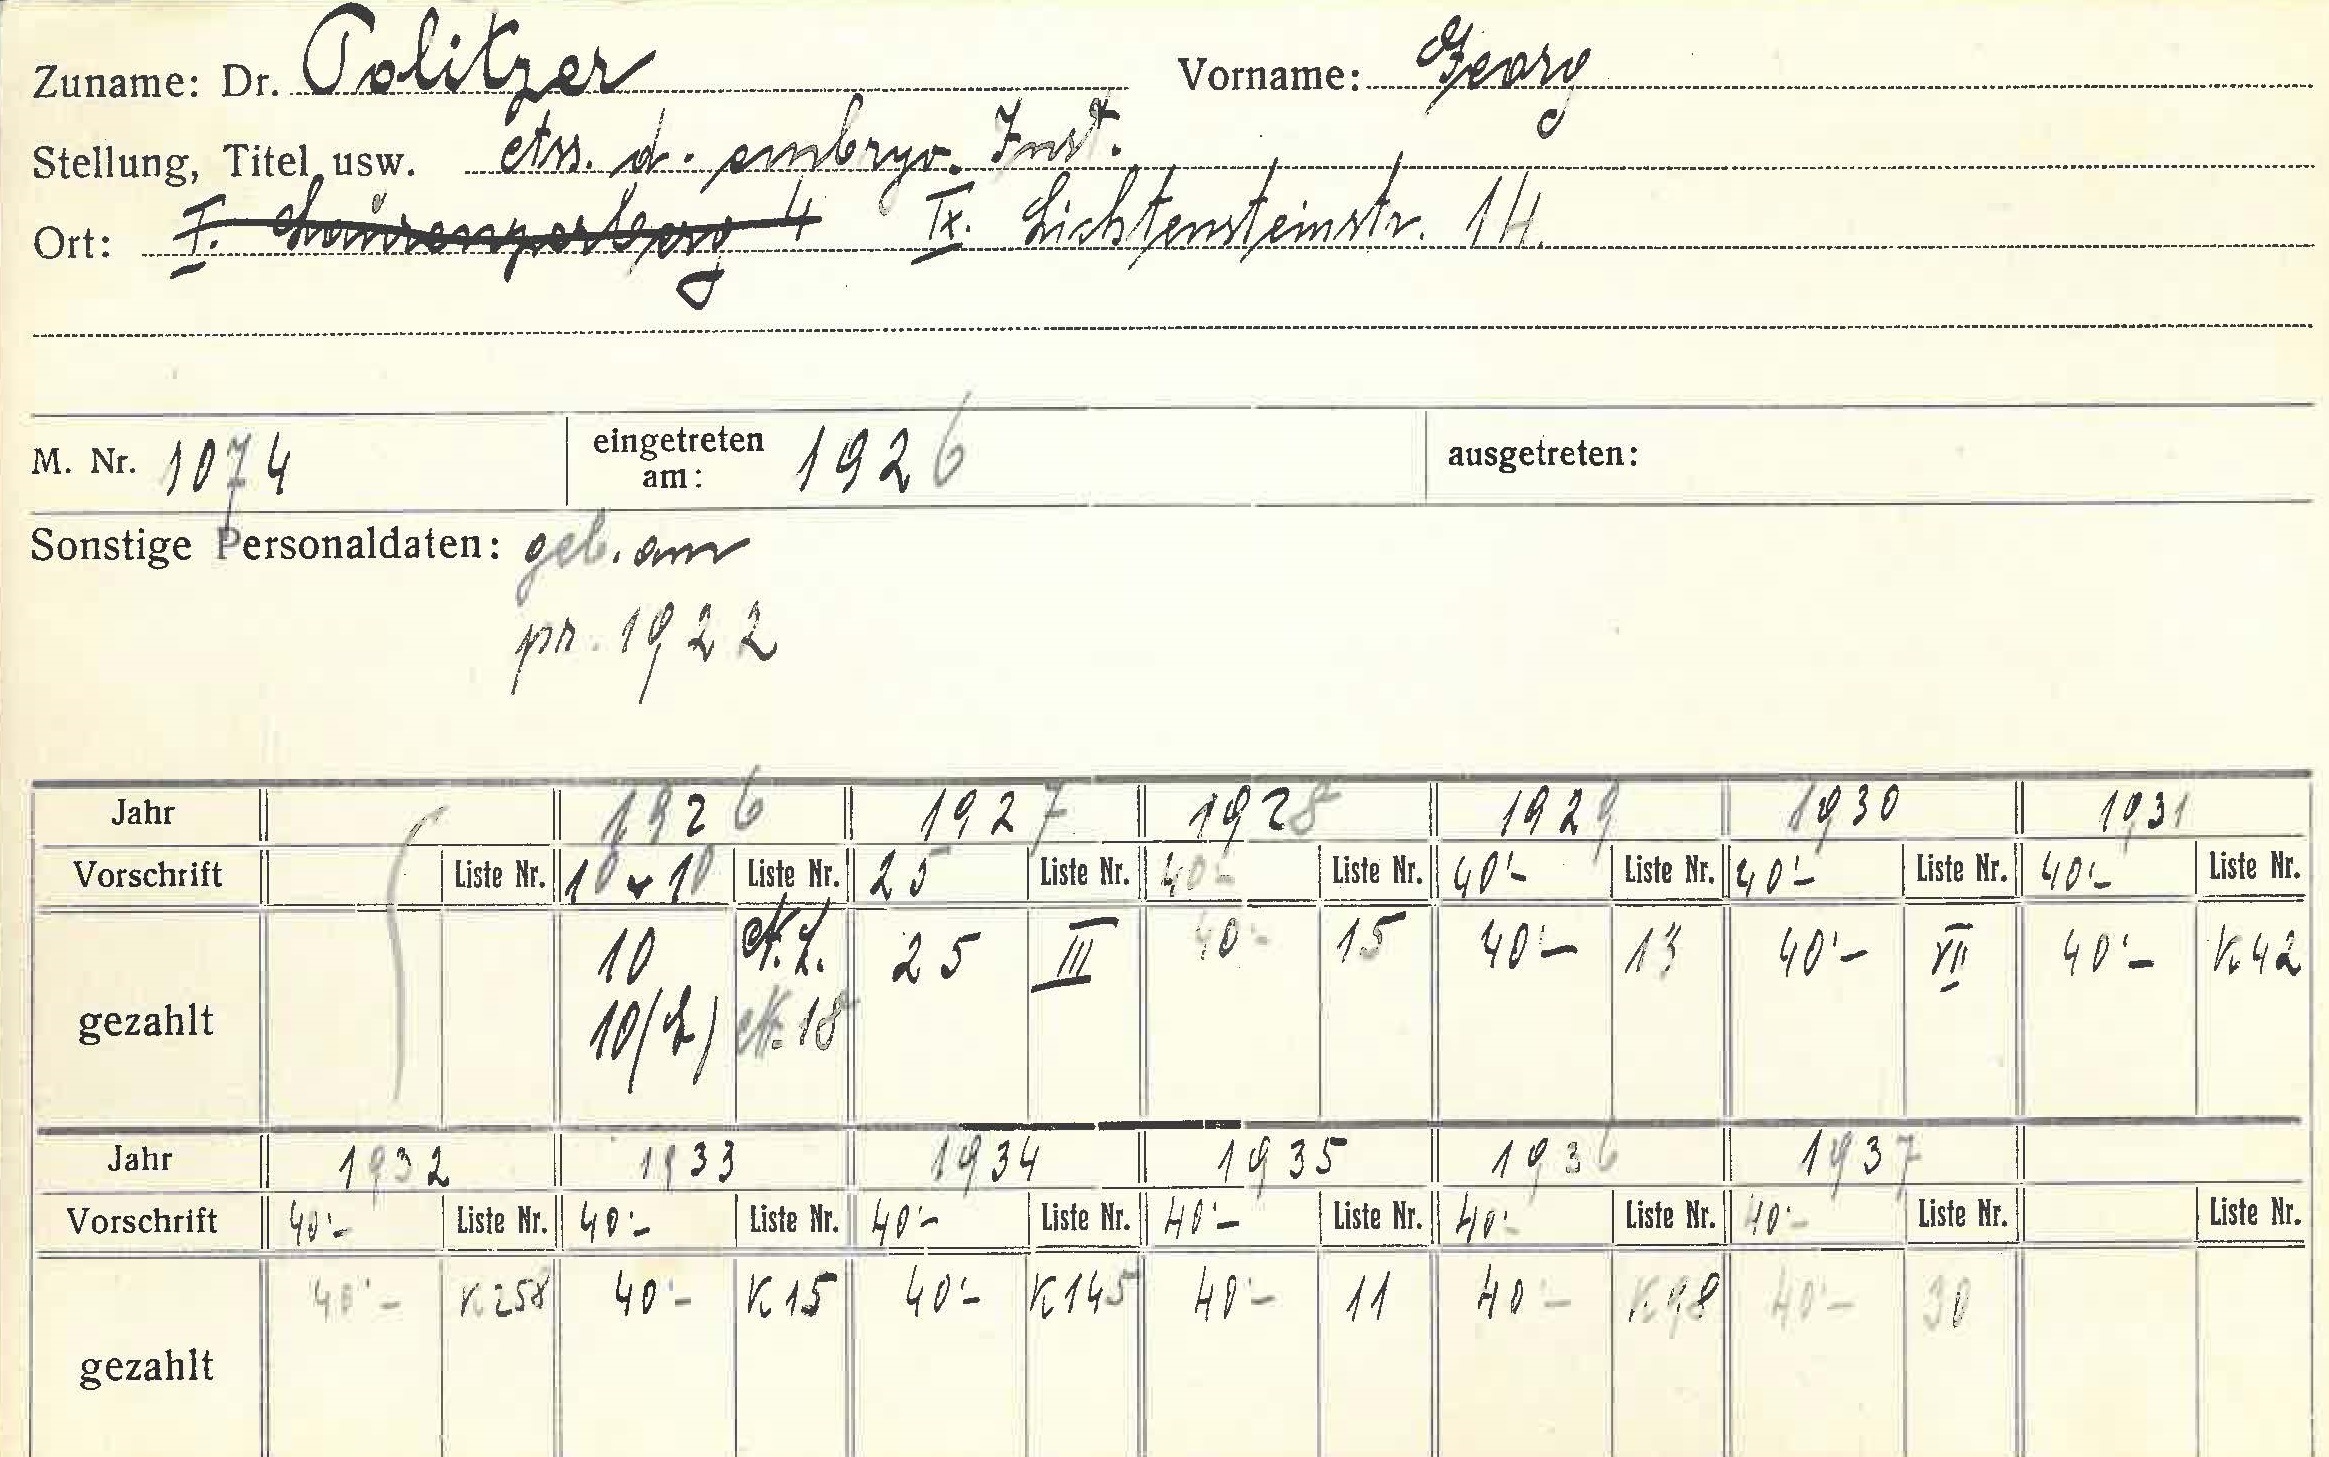 Zuname: Dr. Politzer Vorname: Georg
Stellung, Titel usw. Ass. d. embryo. Inst.
Ort: I. 4 IX. Lichtensteinstr. 14.
M. Nr. 1074 eingetreten am: 1926 ausgetreten:
Sonstige Personaldaten: geb. am
pr. 1922
Jahr 1926 1927 1928 1929 1930 1931
Vorschrift Liste Nr. 10 + 10 Liste Nr. 25 Liste Nr. 40'- Liste Nr. 40'- Liste Nr. 40'- Liste Nr. 40'- Liste Nr.
gezahlt 10 25 III 40'- 15 40'- 13 40'- VII 40'- K 42
10 18
Jahr 1932 1933 1934 1935 1936 1937
Vorschrift 40'- Liste Nr. 40'- Liste Nr. 40'- Liste Nr. 40'- Liste Nr. 40'- Liste Nr. 40'- Liste Nr. Liste Nr.
gezahlt 40'- K 258 40'- K 15 40'- K 145 40'- 11 40'- K 98 40'- 30